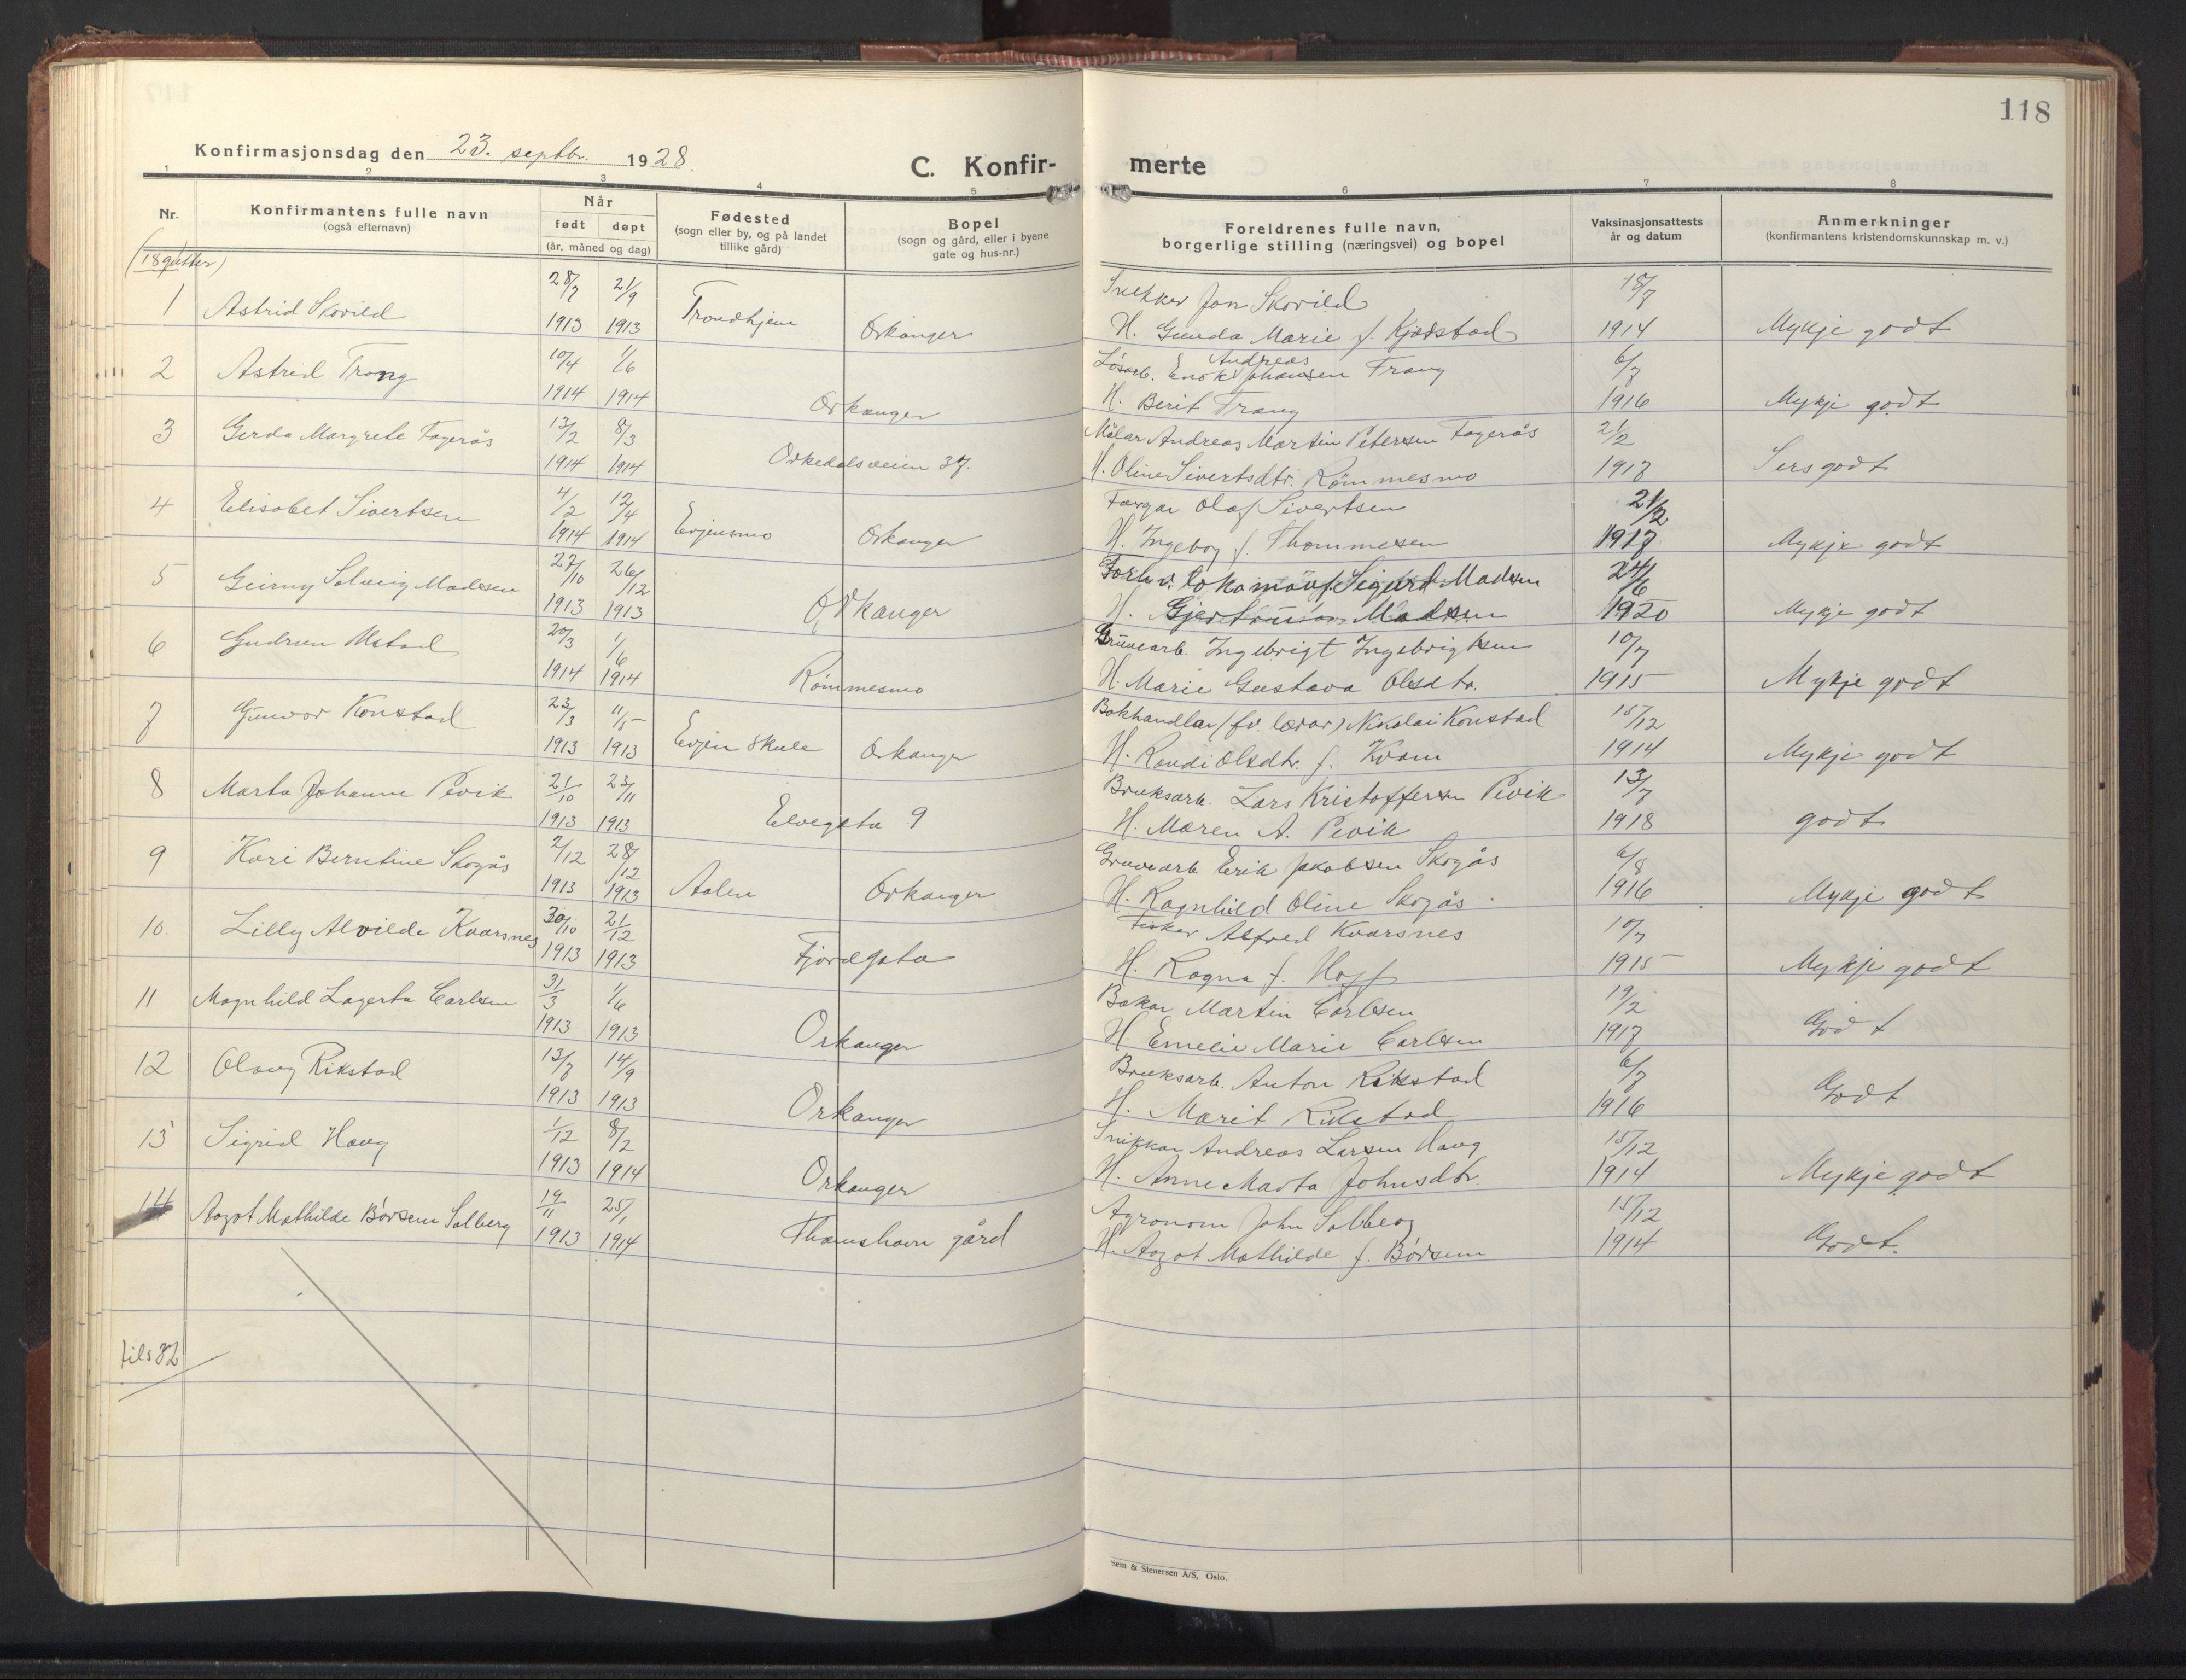 118
Konfirmasjonsdag den 23. septbr. 1928.
C. Konfir-
merte
1 2 3 4 5 6 7 8
Nr.
Konfirmantens fulle navn
(også efternavn)
Når
født døpt
(år, måned og dag)
Fødested
(sogn eller by, og på landet
tillike gård)
Bopel
(sogn og gård, eller i byene
gate og hus-nr.)
Foreldrenes fulle navn,
borgerlige stilling (næringsvei) og bopel
Vaksinasjonsattests
år og datum
Anmerkninger
(konfirmantens kristendomskunnskap m. v.)
(18 gutter)
1 Astrid Skovild 28/7 1913 21/9 1913 Trondhjem Orkanger Jon Skovild 18/7
H. Gunda Marie f. Kjøsstad 1914 Mykje godt
2 Astrid Trang 10/4 1914 1/6 1914 Orkanger Løsarb. Enok Andreas Johansen Trang 6/7
H. Berit Trang 1916 Mykje godt
3 Gerda Margrete Fagerås 13/2 1914 8/3 1914 Orkedalsveien 37. Målar Andreas Martin Petersen Fagerås 21/2
H. Oline Sivertsdtr. Rømmesmo 1917 Sers godt
4 Elisabet Sivertsen 4/2 1914 12/4 1914 Evjensmo Orkanger Fargar Olaf Sivertsen 21/2
H. Ingeborg f. Thommesen 1917 Mykje godt
5 Geirny Solveig Madsen 27/10 1913 26/12 1913 Orkanger Forh.v. lokomotivf. Sigurd Madsen 24/6
H. Madsen 1920 Mykje godt
6 Gudrun Mstad 20/3 1914 1/6 1914 Rømmesmo Gruvearb. Ingebrigt Ingebrigtsen 10/7
H. Marie Gustava Olsdtr. 1915 Mykje godt
7 Gunvor Konstad 23/3 1913 11/5 1913 Evjen skule Orkanger Bokhandlar (fv. lærar) Nikolai Konstad 15/12
H. Randi Olsdtr. f. Kvam 1914 Mykje godt
8 Marta Johanne Pevik 21/10 1913 23/11 1913 Elvegata 9 Bruksarb. Lars Kristoffersen Pevik 13/7
H. Maren A. Pevik 1918 godt
9 Kari Berntine Skogås 2/12 1913 28/12 1913 Aalen Orkanger Gruvearb. Erik Jakobsen Skogås 6/8
H. Ragnhild Oline Skogås 1916 Mykje godt
10. Lilly Alvilde Kvarsnes 30/10 1913 21/12 1913 Fjordgata Fisker Alfred Kvarsnes 10/7
H. Ragna f. Hoff 1915 Mykje godt
11 Magnhild Lagerta Carlsen 31/3 1913 1/6 1913 Orkanger Bakar Martin Carlsen 19/2
H. Emelie Marie Carlsen 1917 Godt
12 Olaug Rikstad 13/7 1913 14/9 1913 Orkanger Bruksarb. Anton Rikstad 6/7
H. Marit Rikstad 1916 Godt
13 Sigrid Haug 1/12 1913 8/2 1914 Orkanger Snikkar Andreas Larsen Haug 15/12
H. Anne Marta Johnsdtr. 1914 Mykje godt
14 Aagot Mathilde Børsem Solberg 19/11 1913 25/1 1914 Thamshavn gård Agronom John Solberg 15/12
H. Aagot Mathilde f. Børsem 1914 Godt.
tils 32
Sem & Stenersen A/S, Oslo.